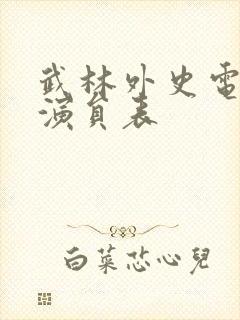 武林外史電
演員表
白菜恋心兒